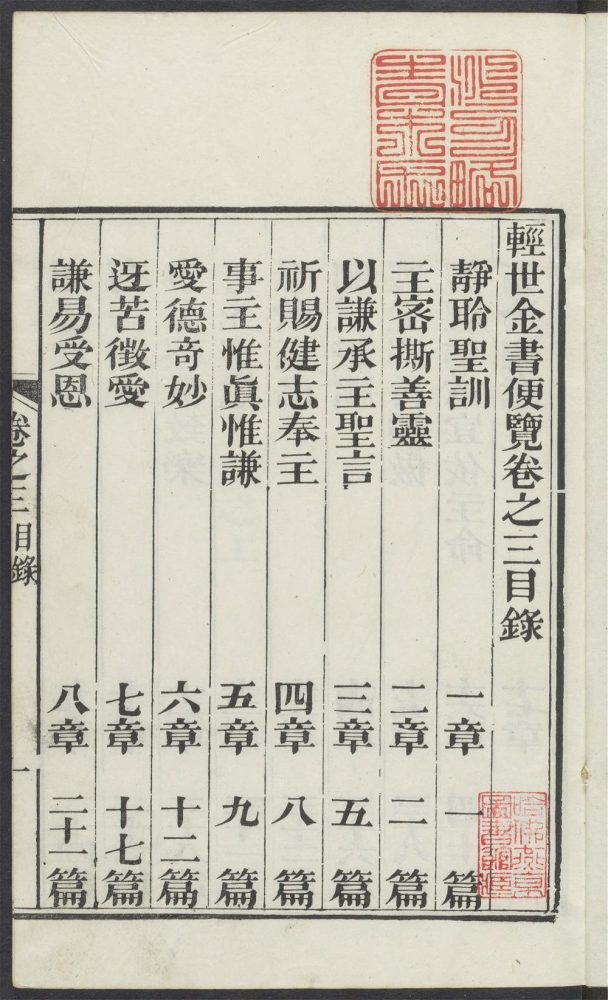 輕世金書便覽卷之三目錄
靜聆聖訓 一章 一篇
主密撕善靈 二章 二篇
以謙承主聖言 三章 五篇
祈賜健志奉主 四章 八篇
事主惟眞惟謙 五章 九篇
愛德奇妙 六章 十二篇
迓苦徵愛 七章 十七篇
謙易受恩 八章 二十一篇
卷之三目錄 一
哈佛燕京圖書館